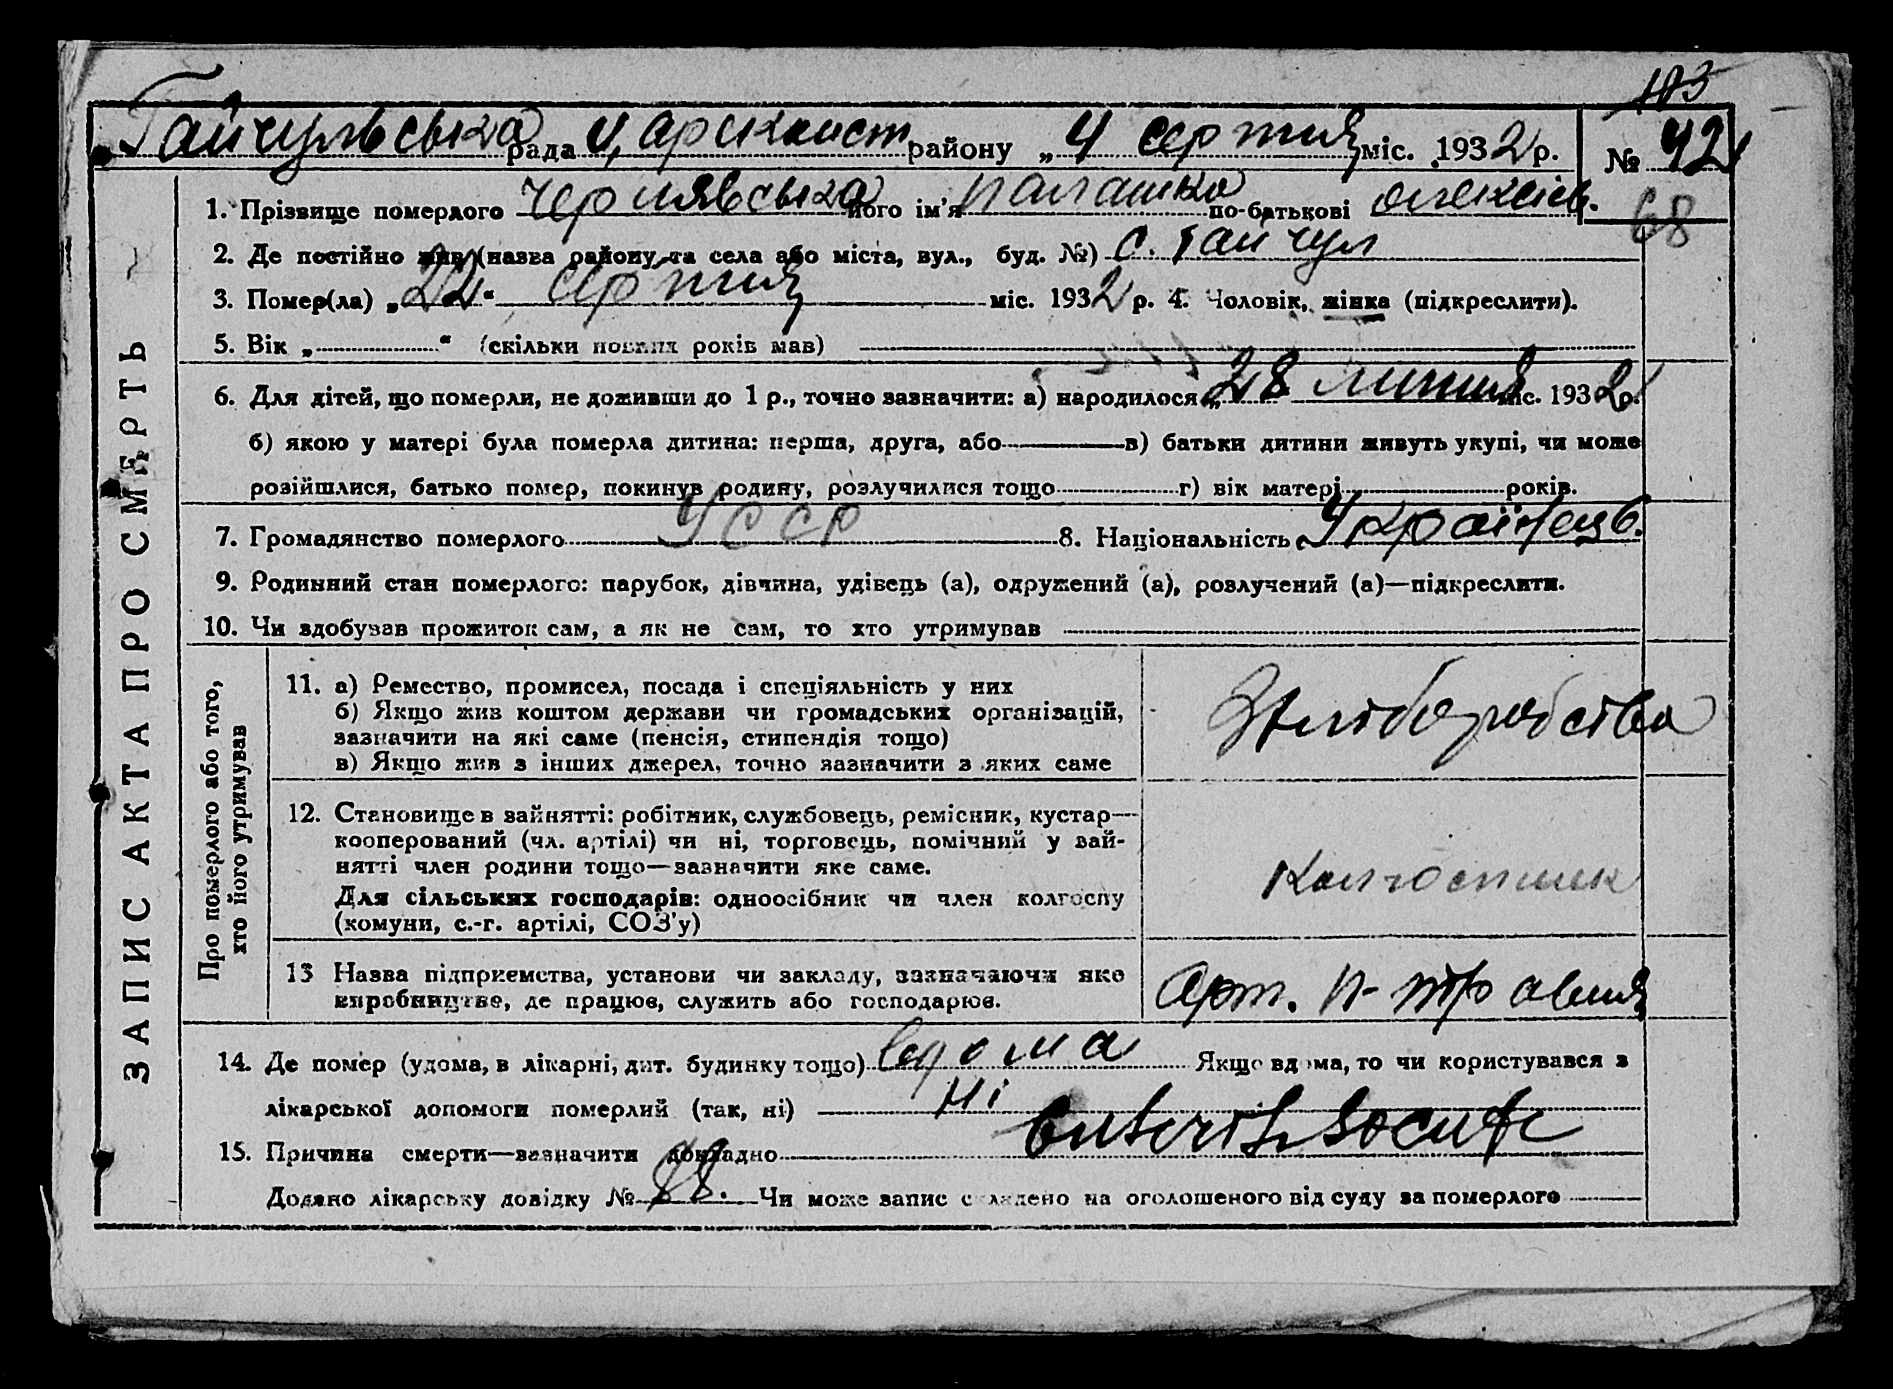 103
Гайчульська рада Царекон ст. району „4 серпня міс. 1932 р. № 42
1. Прізвище померлого Чернявська його ім'я Палашка по-батькові Олексіїв. 68
2. Де постійно жив (назва району та села або міста, вул., буд. №) с. Гайчул
3. Помер(ла) „22“ серпня міс. 1932 р. 4. Чоловік, жінка (підкреслити).
5. Вік „ “ (скільки повних років мав)
6. Для дітей, що померли, не доживши до 1 р., точно зазначити: а) народилося „28 липня міс. 1932 р.
б) якою у матері була померла дитина: перша, друга, або в) батьки дитини живуть укупі, чи може
розійшлися, батько помер, покинув родину, розлучилися тощо г) вік матері років.
7. Громадянство померлого УССР 8. Національність Українець.
9. Родинний стан померлого: парубок, дівчина, удівець (а), одружений (а), розлучений (а)—підкреслити.
10. Чи здобував прожиток сам, а як не сам, то хто утримував
ЗАПИС АКТА ПРО СМЕРТЬ
Про померлого або того,
хто його утримував
11. а) Ремество, промисел, посада і спеціяльність у них
б) Якщо жив коштом держави чи громадських організацій,
зазначити на які саме (пенсія, стипендія тощо)
в) Якщо жив з інших джерел, точно зазначити з яких саме
Хліборобство
12. Становище в зайнятті: робітник, службовець, ремісник, кустар—
кооперований (чл. артілі) чи ні, торговець, помічний у зай-
нятті член родини тощо—зазначити яке саме.
Для сільських господарів: одноосібник чи член колгоспу
(комуни, с.-г. артілі, СОЗ'у)
Колгоспник
13 Назва підприємства, установи чи закладу, зазначаючи яке
виробництво, де працює, служить або господарює.
Арт. П-травня
14. Де помер (удома, в лікарні, дит. будинку тощо) вдома Якщо вдома, то чи користувався з
лікарської допомоги померлий (так, ні) Ні
15. Причина смерти—зазначити докладно
Додано лікарську довідку № 88. Чи може запис складено на оголошеного від суду за померлого